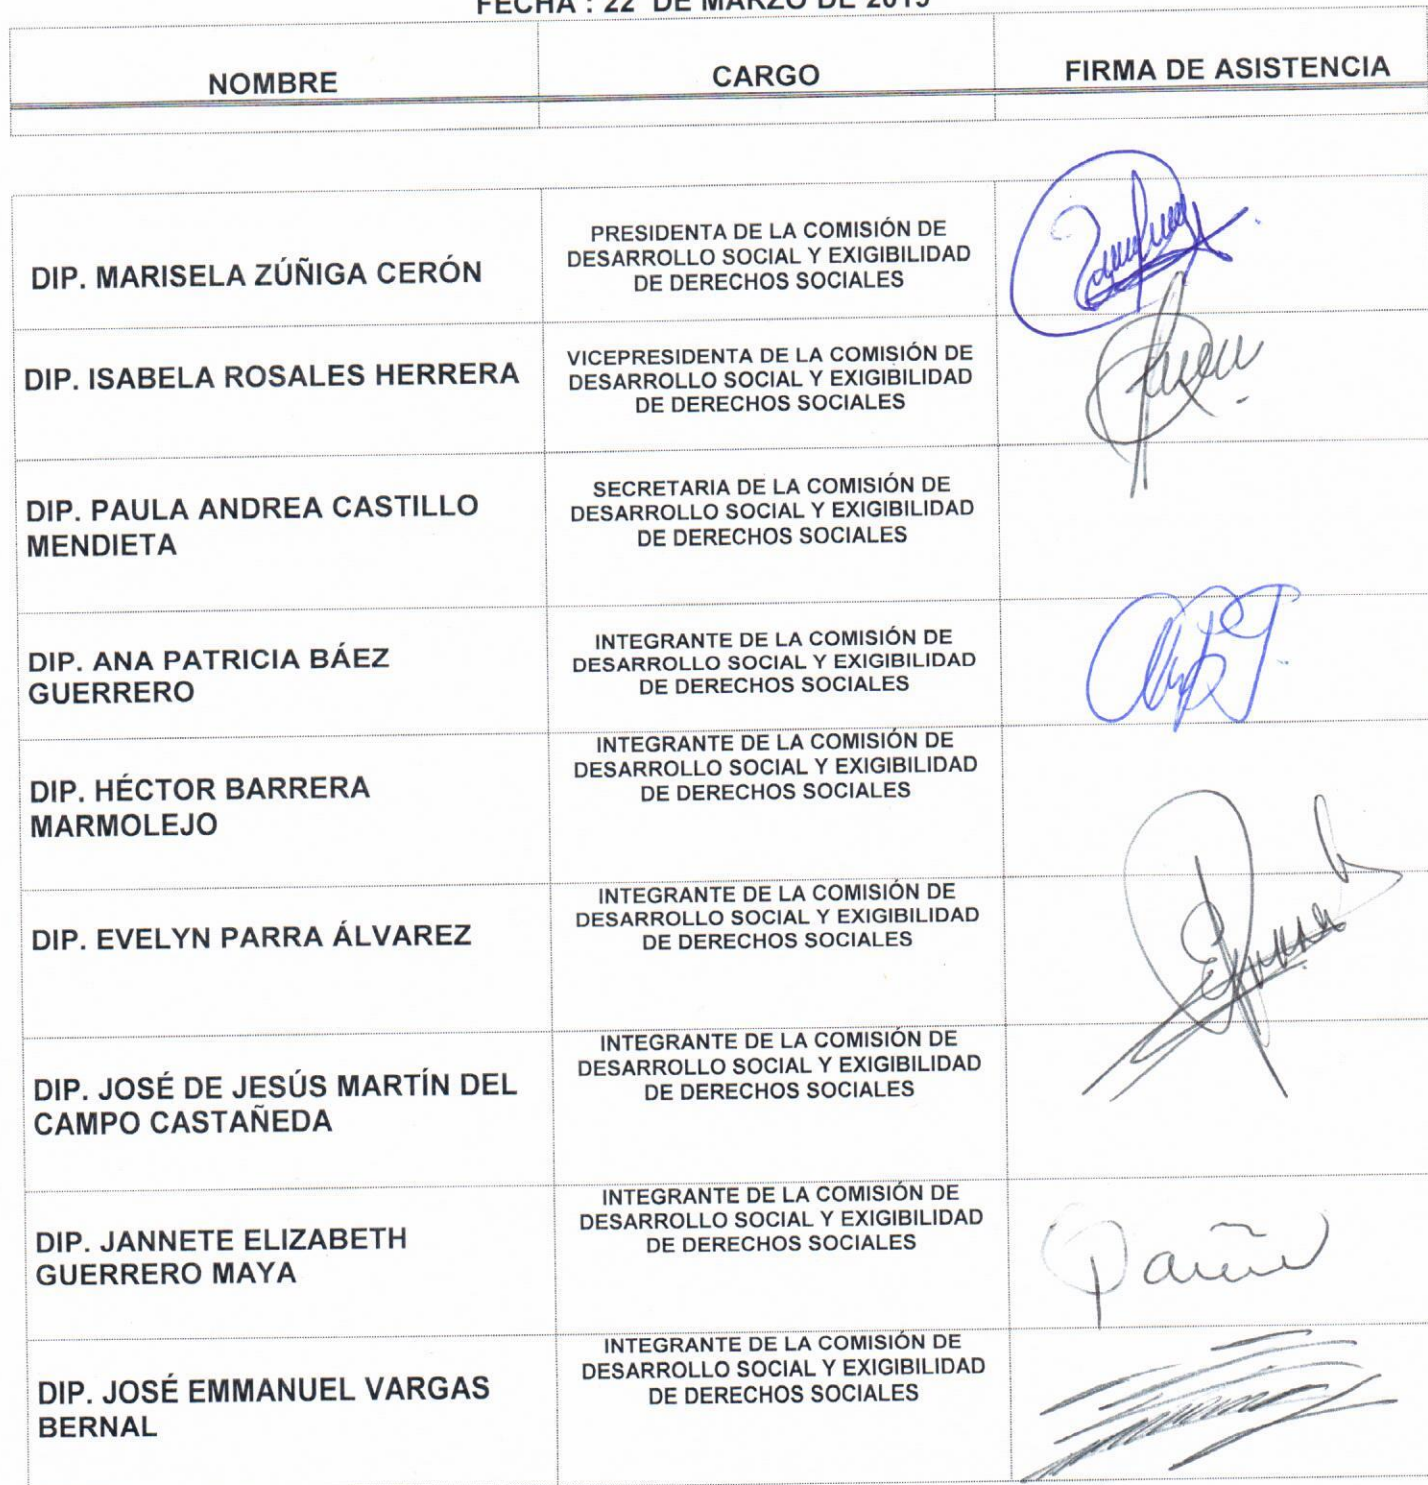 FECHA : 22 DE MARZO DE 2019
NOMBRE CARGO FIRMA DE ASISTENCIA
DIP. MARISELA ZÚÑIGA CERÓN
PRESIDENTA DE LA COMISIÓN DE
DESARROLLO SOCIAL Y EXIGIBILIDAD
DE DERECHOS SOCIALES
DIP. ISABELA ROSALES HERRERA
VICEPRESIDENTA DE LA COMISIÓN DE
DESARROLLO SOCIAL Y EXIGIBILIDAD
DE DERECHOS SOCIALES
DIP. PAULA ANDREA CASTILLO
MENDIETA
SECRETARIA DE LA COMISIÓN DE
DESARROLLO SOCIAL Y EXIGIBILIDAD
DE DERECHOS SOCIALES
DIP. ANA PATRICIA BÁEZ
GUERRERO
INTEGRANTE DE LA COMISIÓN DE
DESARROLLO SOCIAL Y EXIGIBILIDAD
DE DERECHOS SOCIALES
DIP. HÉCTOR BARRERA
MARMOLEJO
INTEGRANTE DE LA COMISIÓN DE
DESARROLLO SOCIAL Y EXIGIBILIDAD
DE DERECHOS SOCIALES
DIP. EVELYN PARRA ÁLVAREZ
INTEGRANTE DE LA COMISIÓN DE
DESARROLLO SOCIAL Y EXIGIBILIDAD
DE DERECHOS SOCIALES
DIP. JOSÉ DE JESÚS MARTÍN DEL
CAMPO CASTAÑEDA
INTEGRANTE DE LA COMISIÓN DE
DESARROLLO SOCIAL Y EXIGIBILIDAD
DE DERECHOS SOCIALES
DIP. JANNETE ELIZABETH
GUERRERO MAYA
INTEGRANTE DE LA COMISIÓN DE
DESARROLLO SOCIAL Y EXIGIBILIDAD
DE DERECHOS SOCIALES
DIP. JOSÉ EMMANUEL VARGAS
BERNAL
INTEGRANTE DE LA COMISIÓN DE
DESARROLLO SOCIAL Y EXIGIBILIDAD
DE DERECHOS SOCIALES